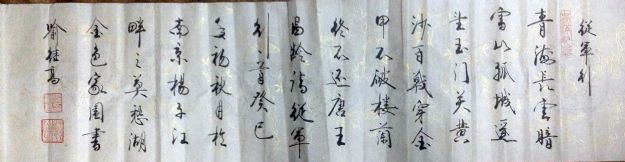 從軍行
青海長雲暗
雪山孤城遥
望玉门关黄
沙百戰穿金
甲不破楼蘭
终不还唐王
昌龄诗從軍
行一首癸巳
年初秋月於
南京楊子江
畔之莫愁湖
金色家園書
喻桂高